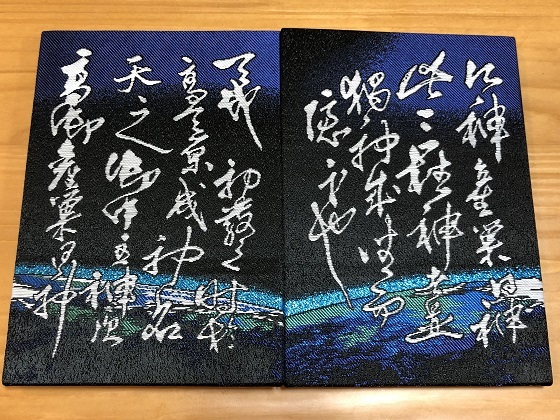 天地初發之時於
高天原成神名
天之御中主神次
高御産巣日神
次神産巣日神
此三柱神並
獨神成坐而
隱身也